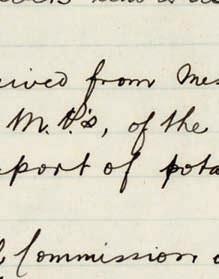 eived from Mes
M.P.'s, of the
port of pota
Commission